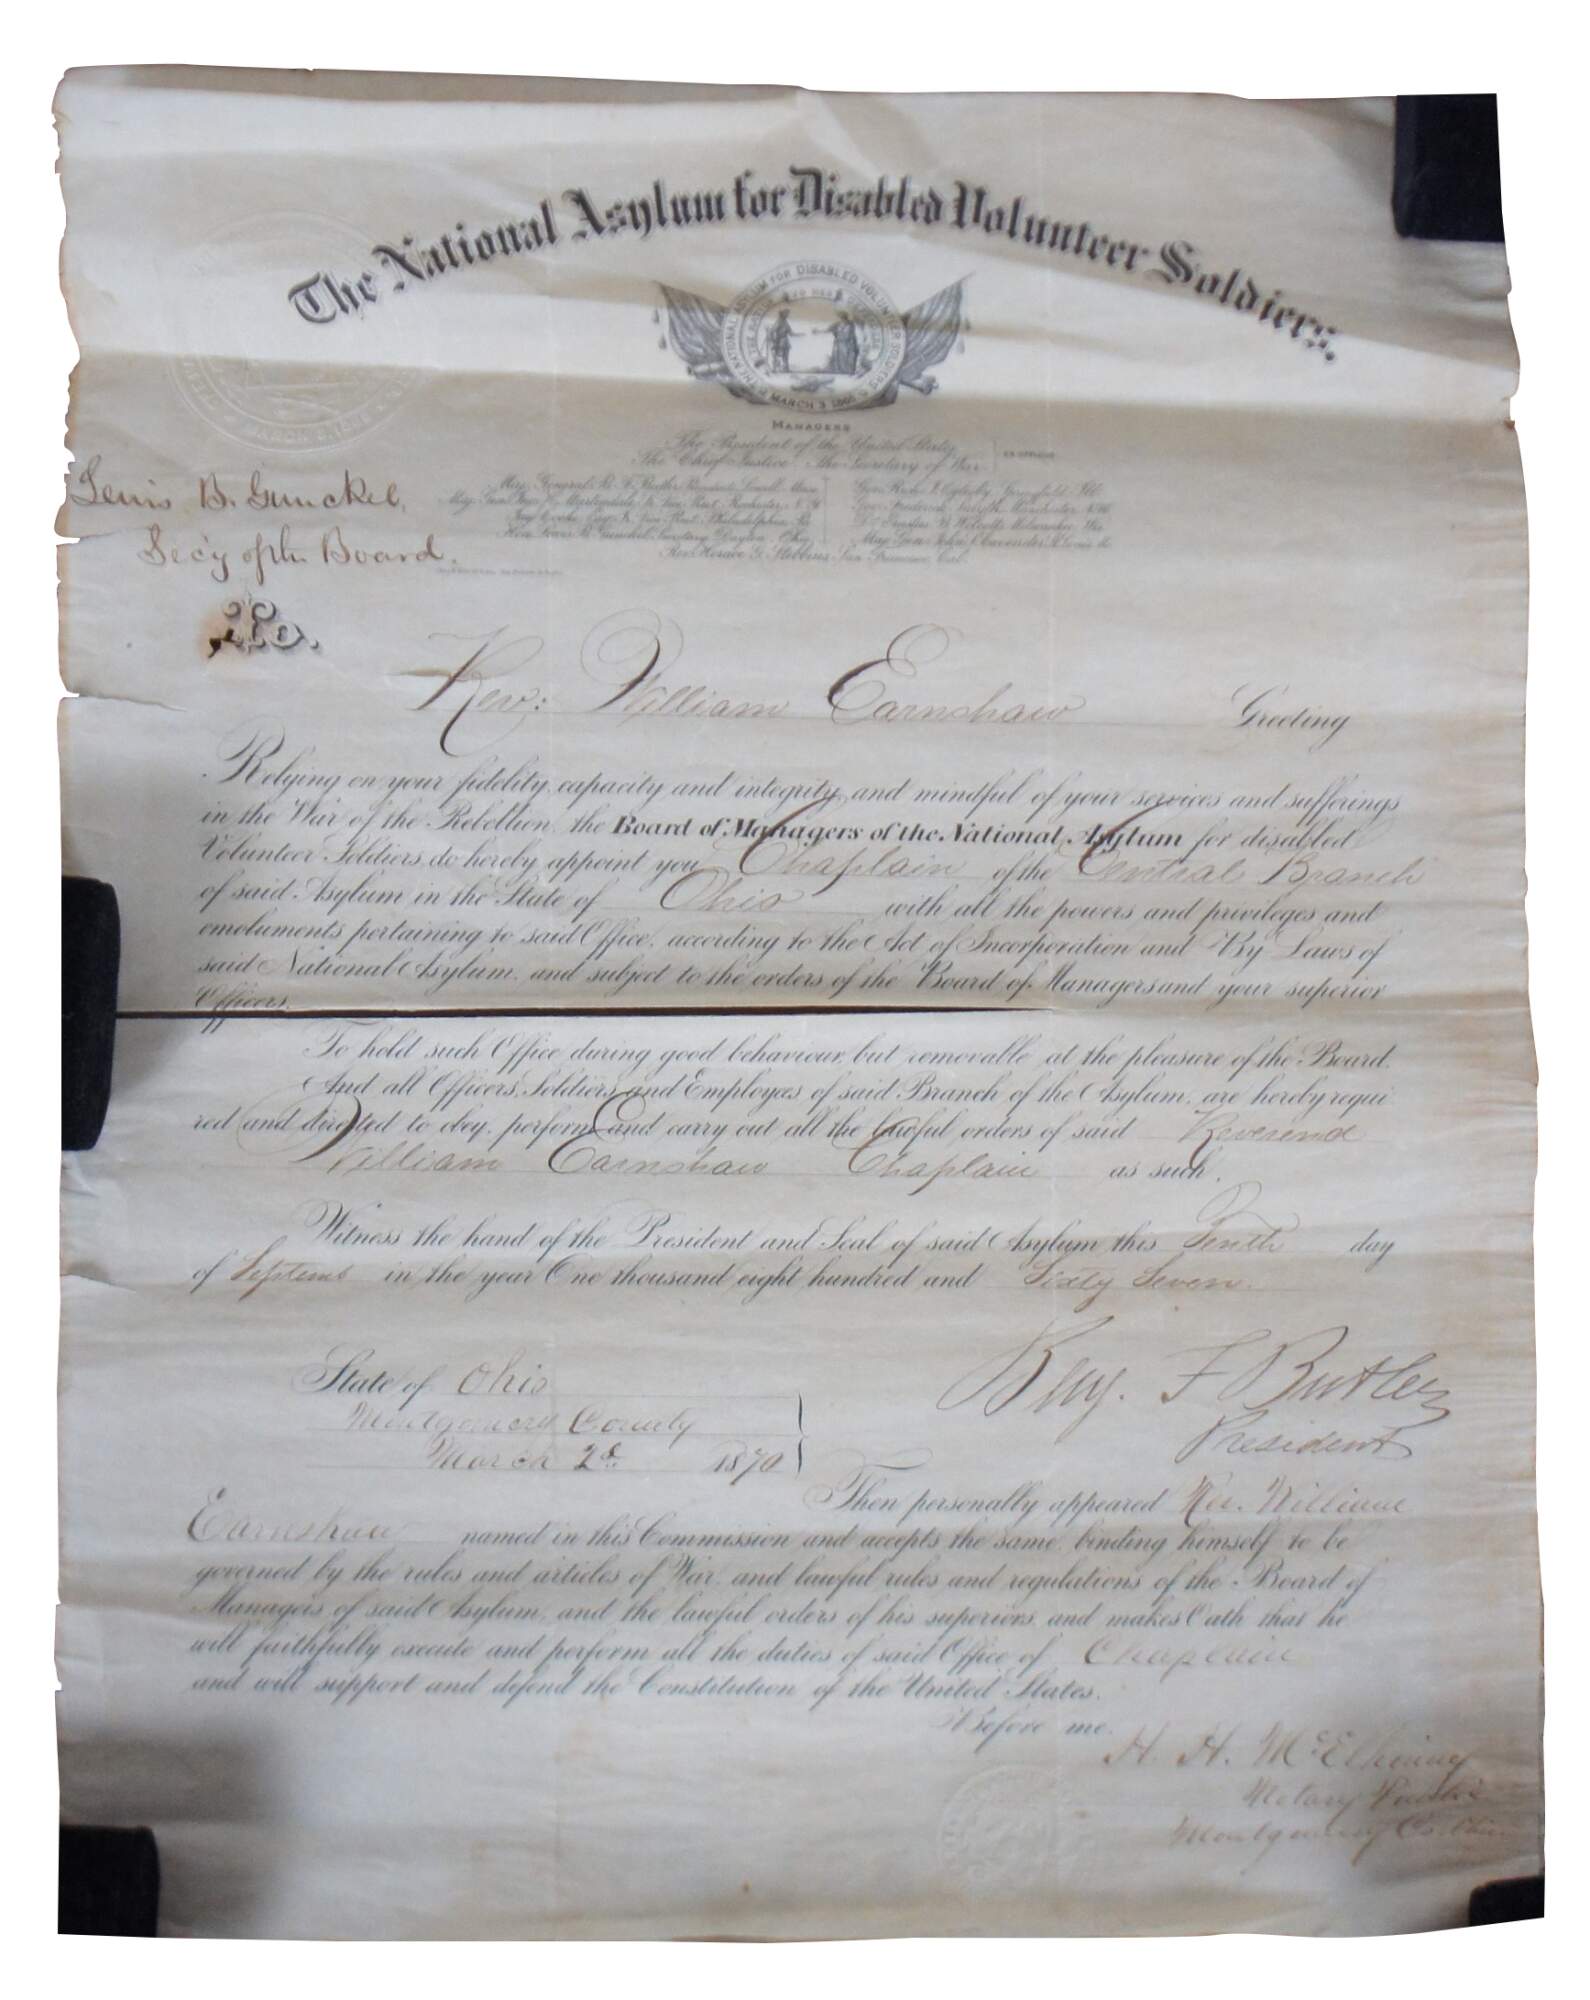 The National Asylum for Disabled Volunteer Soldiers.
THE NATIONAL ASYLUM FOR DISABLED VOLUNTEER SOLDIERS
MARCH 3 1865
MANAGERS
The President of the United States,
The Chief Justice, The Secretary of War
EX OFFICIO
Maj. General B. F. Butler President Lowell Mass
Maj. Gen. Jno. H. Martindale Vice Prest. Rochester N.Y.
Jay Cooke Vice Prest. Philadelphia Pa
Hon. Lewis B. Gunckel Secretary Dayton Ohio
Gov. Frederick Smyth Manchester N.H.
Dr. Erastus B. Wolcott Milwaukee Wis
Maj. Gen. John Cavender St Louis Mo
Rev. Horace G. Stebbins San Francisco Cal.
Lewis B. Gunckel,
Sec'y of th. Board.
To.
Rev: William Earnshaw Greeting
Relying on your fidelity, capacity and integrity, and mindful of your services and sufferings
in the War of the Rebellion, the Board of Managers of the National Asylum for disabled
Volunteer Soldiers, do hereby appoint you Chaplain of the Central Branch
of said Asylum in the State of Ohio with all the powers and privileges and
emoluments pertaining to said Office, according to the Act of Incorporation and By Laws of
said National Asylum, and subject to the orders of the Board of Managers and your superior
Officers.
To hold such Office during good behaviour, but removable at the pleasure of the Board.
And all Officers, Soldiers and Employees of said Branch of the Asylum, are hereby requi
red and directed to obey, perform and carry out all the lawful orders of said Reverend
William Earnshaw Chaplain as such.
Witness the hand of the President and Seal of said Asylum this Tenth day
of Septemb in the year One thousand eight hundred and Sixty Seven.
Benj. F Butler
President
State of Ohio
Montgomery County
March 2d 1870
Then personally appeared Rev. William
Earnshaw named in this Commission and accepts the same, binding himself to be
governed by the rules and articles of War, and lawful rules and regulations of the Board of
Managers of said Asylum, and the lawful orders of his superiors, and makes Oath that he
will faithfully execute and perform all the duties of said Office of Chaplain
and will support and defend the Constitution of the United States.
Before me.
H. H. McElhiney
Notary Public
Montgomery Co. Ohio